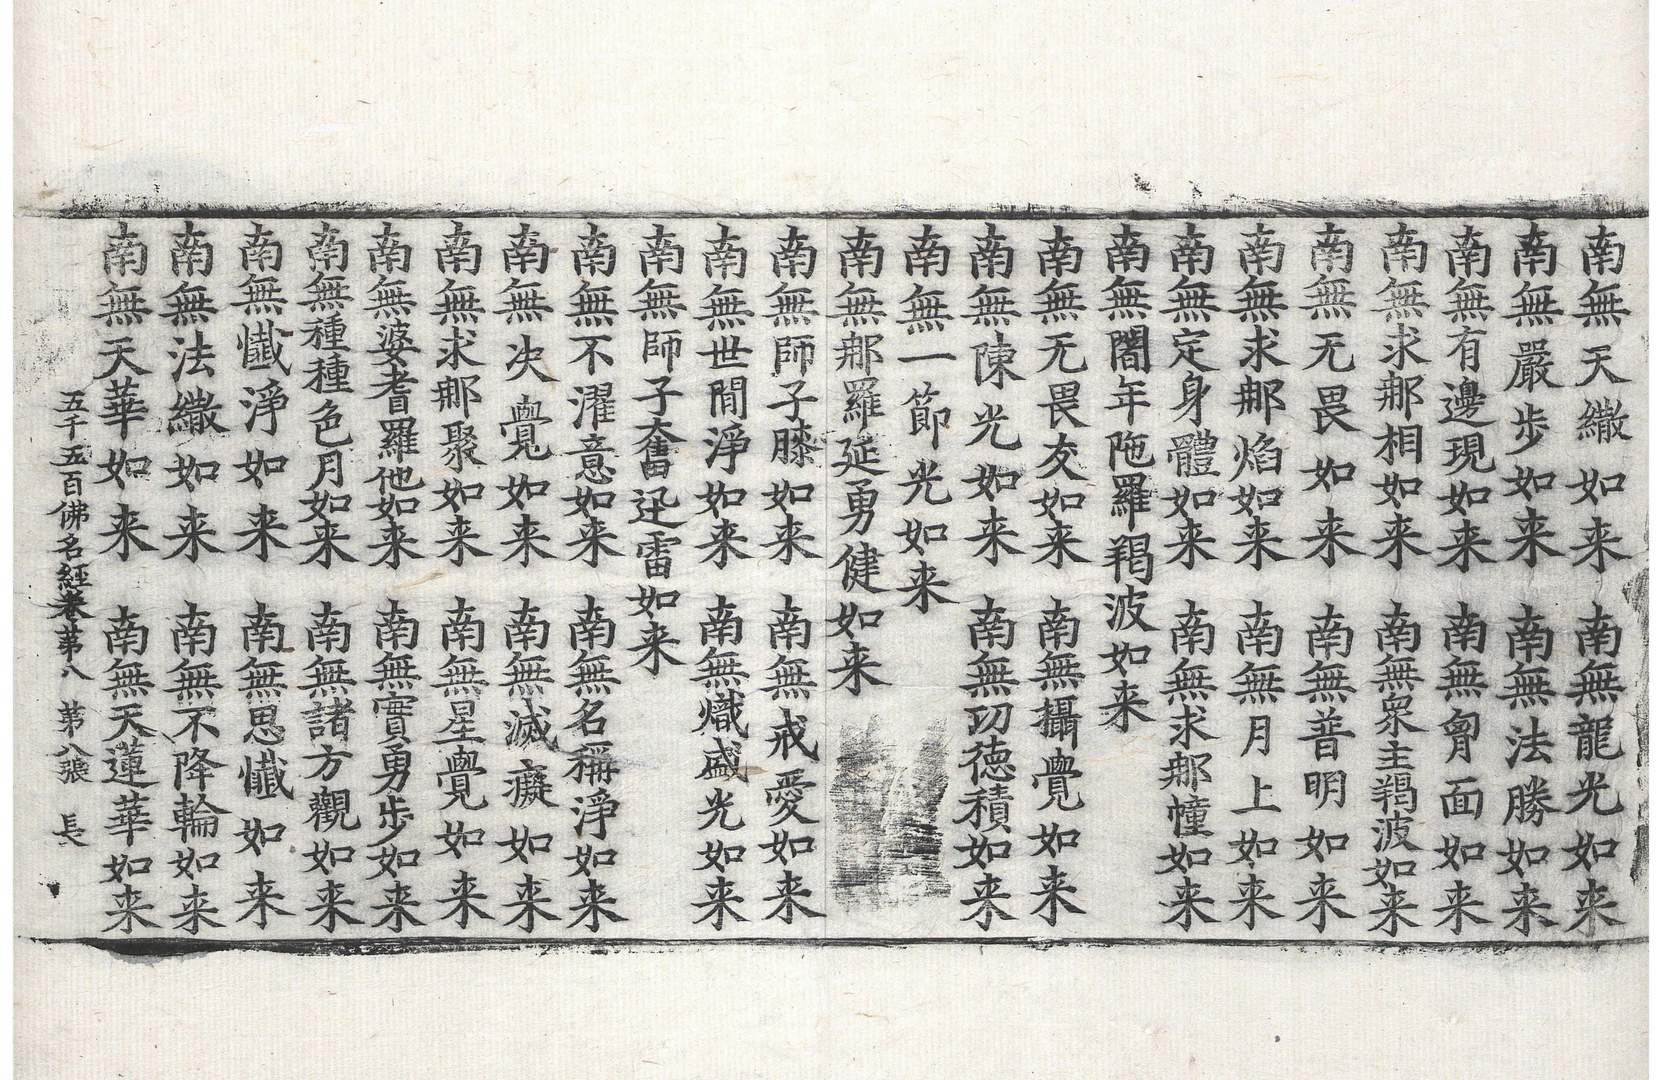 南無天繖如来　南無龍光如来
南無嚴步如来　南無法勝如来
南無有邊現如来　南無胷面如来
南無求那相如来　南無眾主羯波如来
南無无畏如来　南無普明如来
南無求那焰如来　南無月上如来
南無定身體如来　南無求那幢如来
南無闍年陁羅羯波如来
南無无畏友如来　南無攝覺如来
南無陳光如来　南無功德積如来
南無一節光如来
南無那羅延勇健如来
南無師子膝如来　南無戒愛如来
南無世間淨如来　南無熾盛光如来
南無師子奮迅雷如来
南無不濯意如来　南無名稱淨如来
南無決覺如来　南無滅癡如来
南無求那聚如来　南無星覺如来
南無婆耆羅他如来　南無實勇步如来
南無種種色月如来　南無諸方觀如来
南無懺淨如来　南無思懺如来
南無法繖如来　南無不降輪如来
南無天華如来　南無天蓮華如来
五千五百佛名經卷苐八　苐八張　長